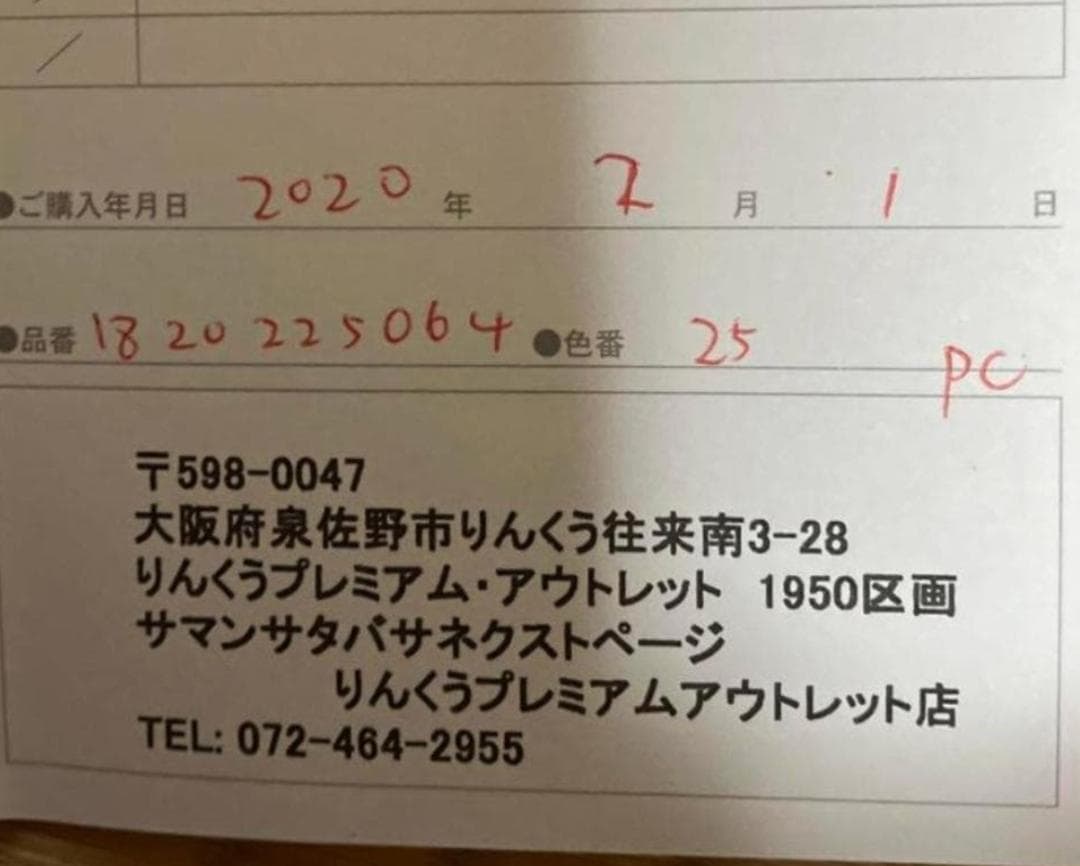 ／
●ご購入年月日 2020 年 2 月 1 日
●品番 1820225064 ●色番 25
PC
〒598-0047
大阪府泉佐野市りんくう往来南3-28
りんくうプレミアム・アウトレット 1950区画
サマンサタバサネクストページ
りんくうプレミアムアウトレット店
TEL: 072-464-2955